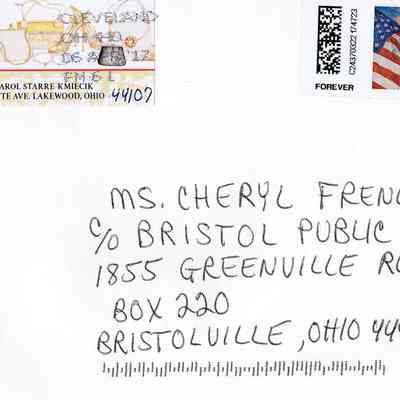 CLEVELAND
OH 440
'17
AROL STARRE-KMIECIK
TTE AVE. LAKEWOOD, OHIO 44107
C24370322 174723
FOREVER
MS. CHERYL FREN
C/O BRISTOL PUBLIC
1855 GREENVILLE RO
BOX 220
BRISTOLVILLE, OHIO 444